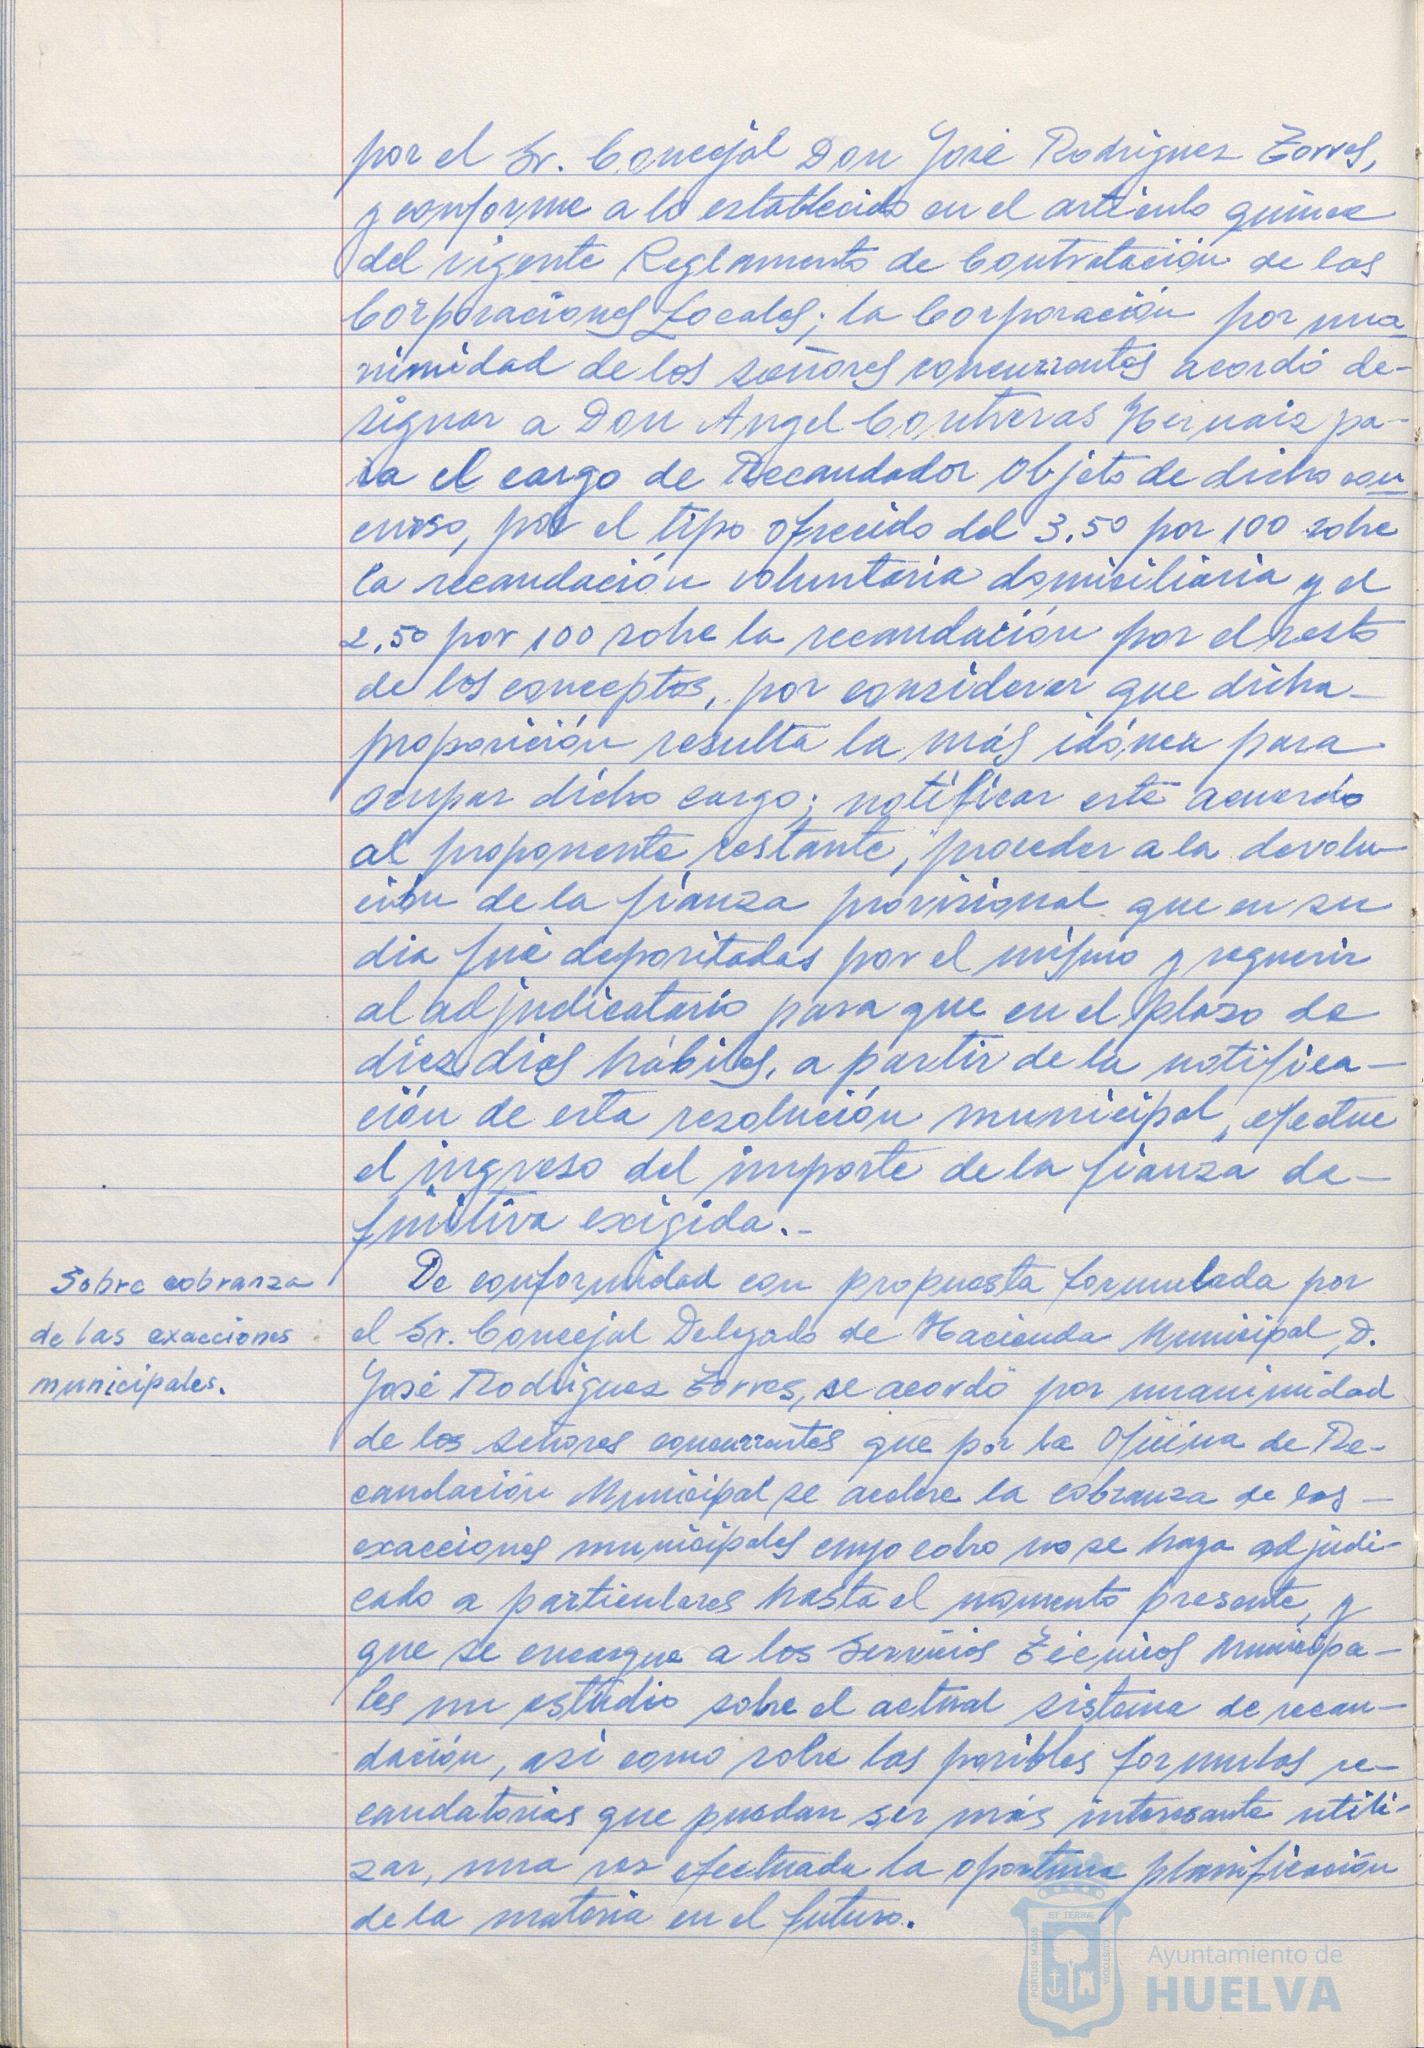 por el Sr. Concejal Don José Rodríguez Torres,
y conforme a lo establecido en el artículo quince
del vigente Reglamento de Contratación de las
Corporaciones Locales; la Corporación por una
nimidad de los señores concurrentes acordó de-
signar a Don Angel Contreras Hernaiz pa-
ra el cargo de Recaudador objeto de dicho con
curso, por el tipo ofrecido del 3,50 por 100 sobre
la recaudación voluntaria domiciliaria y el
2,50 por 100 sobre la recaudación por el resto
de los conceptos, por considerar que dicha
proposición resulta la más idónea para
ocupar dicho cargo; notificar este acuerdo
al proponente restante, proceder a la devolu-
ción de la fianza provisional que en su
dia fué depositadas por el mismo y requerir
al adjudicatario para que en el plazo de
diez dias hábiles, a partir de la notifica-
ción de esta resolución municipal, efectue
el ingreso del importe de la fianza de-
finitiva exigida.-
Sobre cobranza
de las exacciones
municipales.
De conformidad con propuesta formulada por
el Sr. Concejal Delegado de Hacienda Municipal, D.
José Rodríguez Torres, se acordó por unanimidad
de los señores concurrentes que por la Oficina de Re-
caudación Municipal se acelere la cobranza de las
exacciones municipales cuyo cobro no se haya adjudi-
cado a particulares hasta el momento presente, y
que se encargue a los Servicios Técnicos Municipa-
les un estudio sobre el actual sistema de recau-
dación, asi como sobre las posibles formulas re-
caudatorias que puedan ser más interesante utili-
zar, una vez efectuada la oportuna planificación
de la materia en el futuro.
PORTUS MARIS ET TERRAE CUSTODIA
Ayuntamiento de
HUELVA